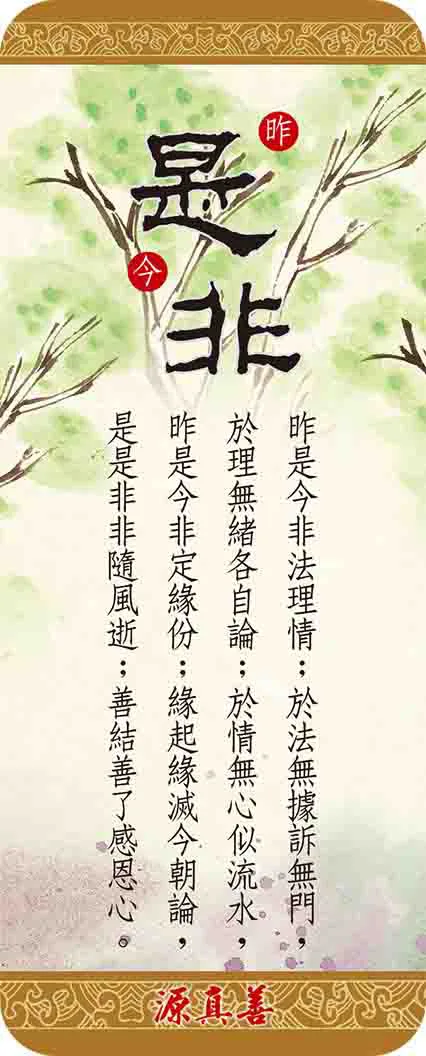 昨
是
今
非
昨是今非法理情；於法無據訴無門，
於理無緒各自論；於情無心似流水，
昨是今非定緣份；緣起緣滅今朝論，
是是非非隨風逝；善結善了感恩心。
源真善